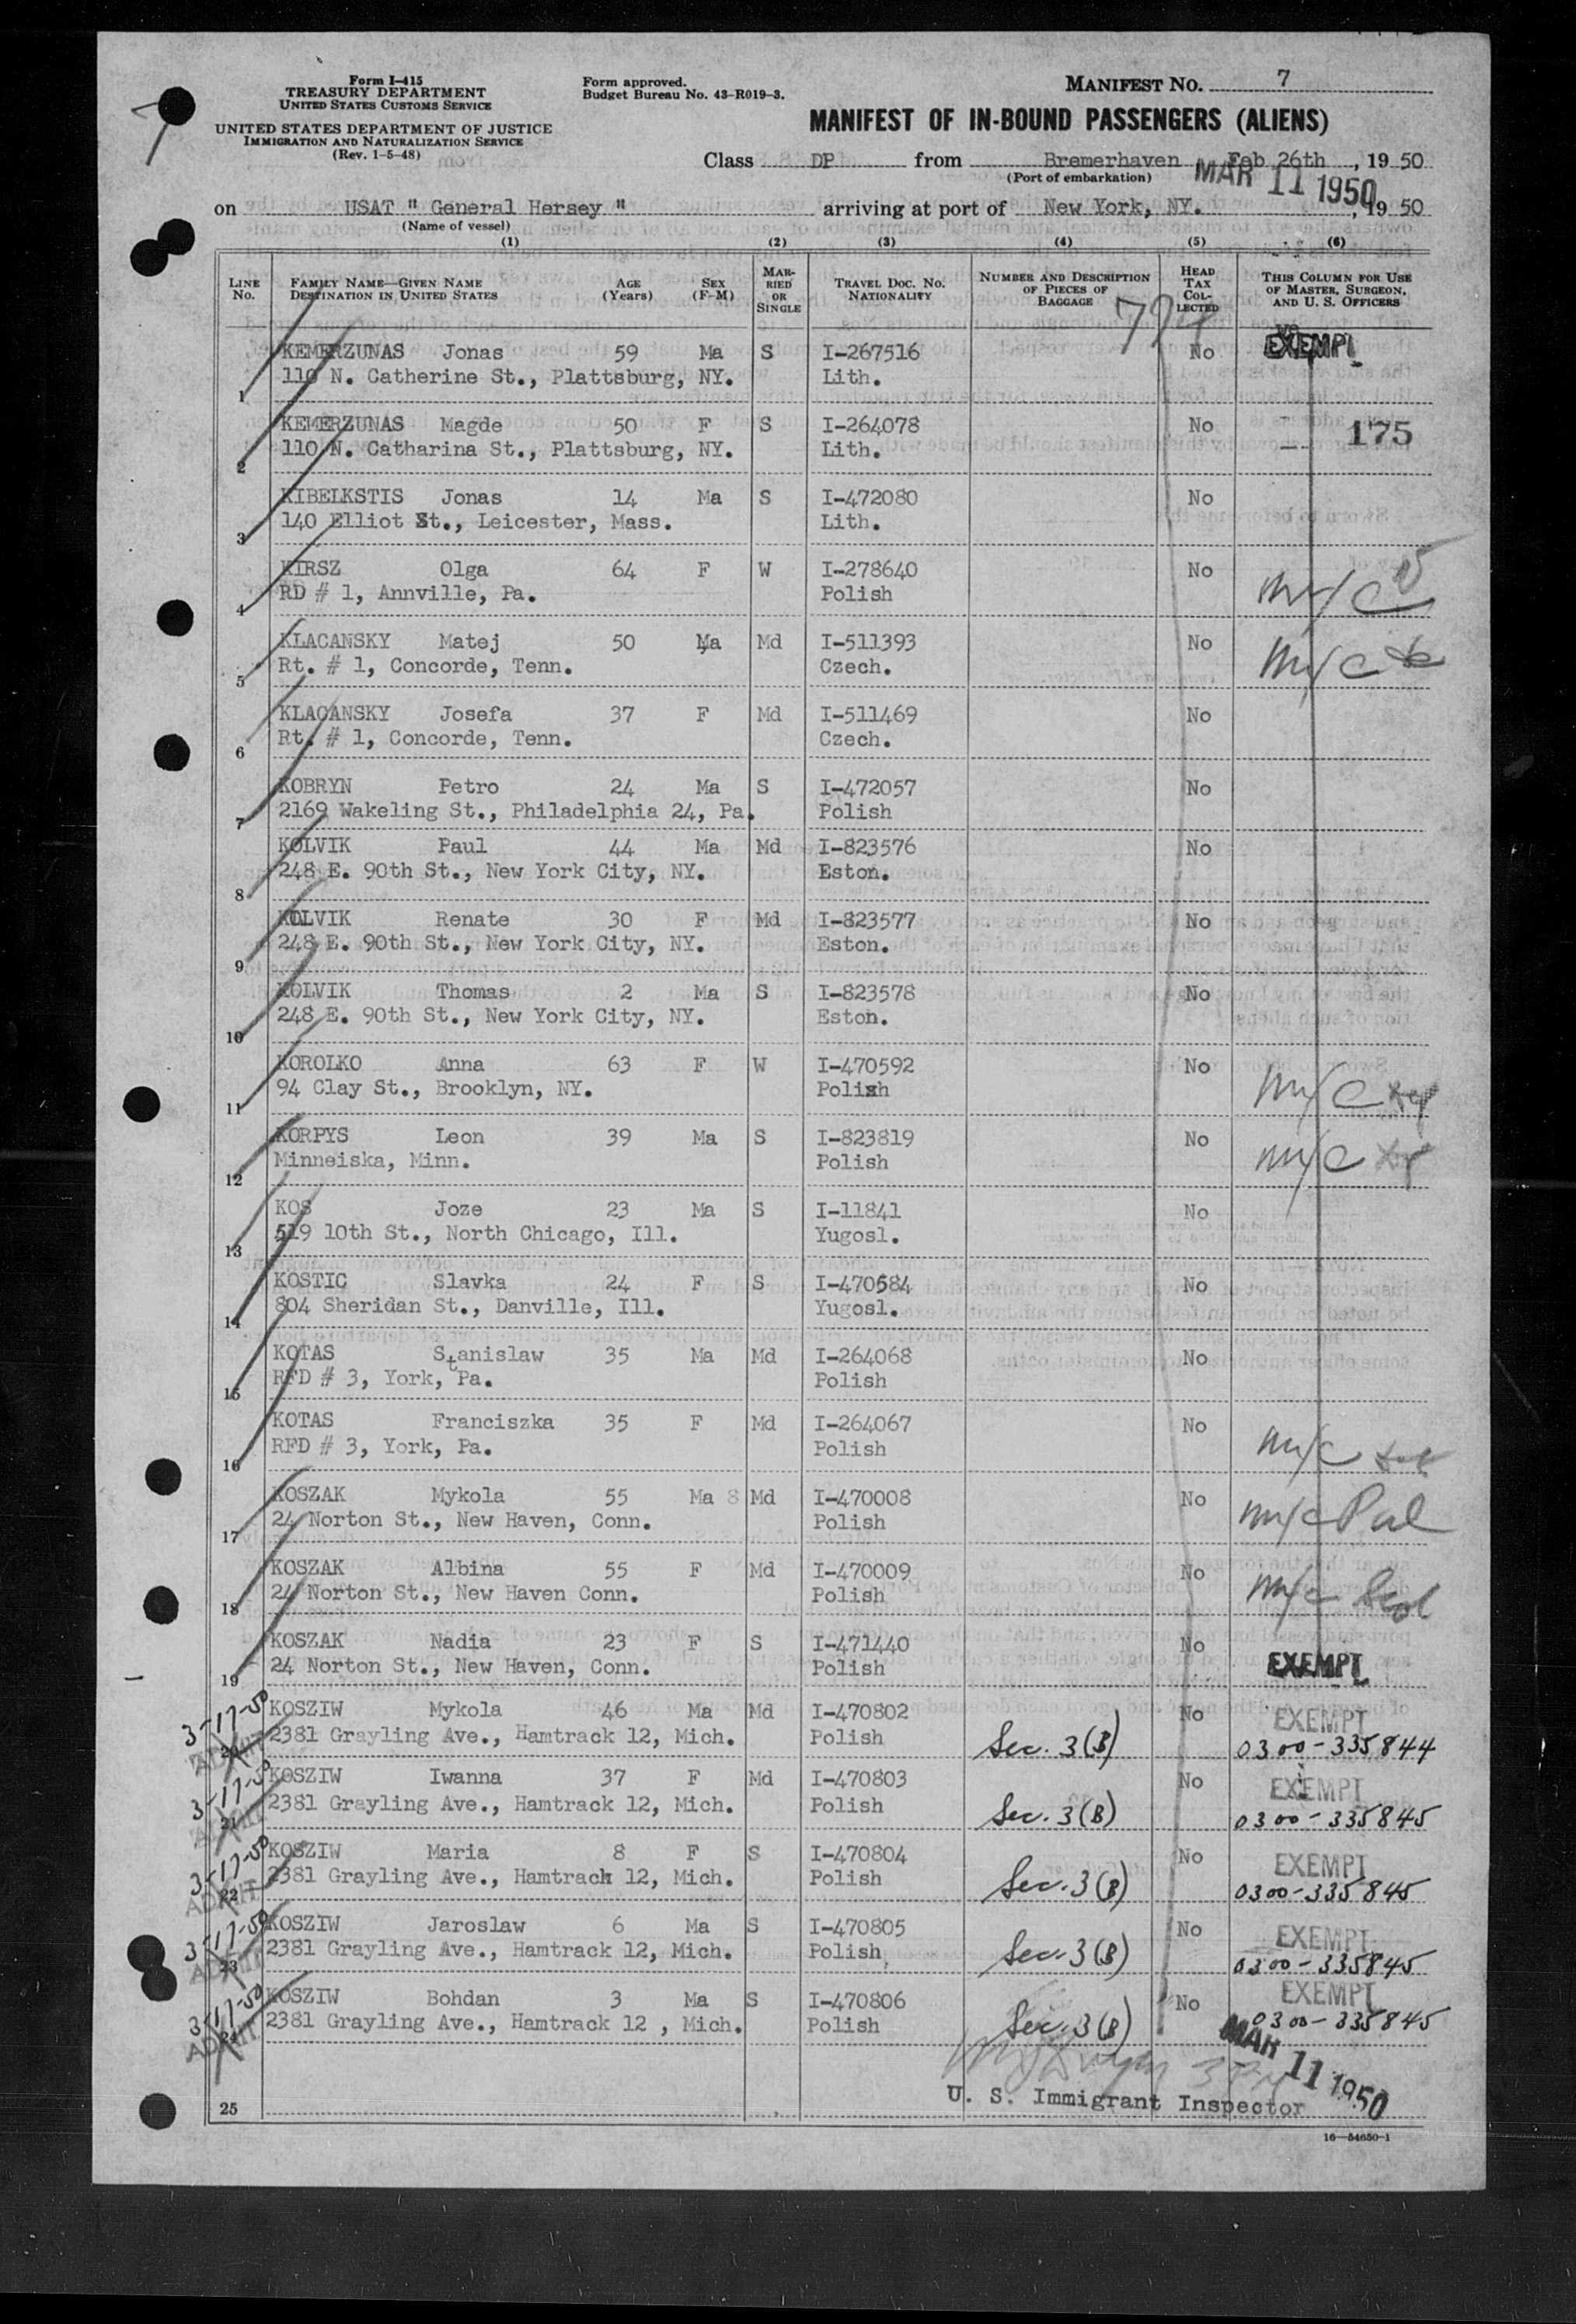 Form I-415
TREASURY DEPARTMENT
UNITED STATES CUSTOMS SERVICE
UNITED STATES DEPARTMENT OF JUSTICE
IMMIGRATION AND NATURALIZATION SERVICE
(Rev. 1-5-48)
Form approved.
Budget Bureau No. 43-R019-3.
MANIFEST NO. 7
MANIFEST OF IN-BOUND PASSENGERS (ALIENS)
Class DP from Bremerhaven Feb 26th, 19 50
(Port of embarkation)
MAR 11 1950
on USAT " General Hersey " arriving at port of New York, NY. , 19 50
(Name of vessel)
(1) (2) (3) (4) (5) (6)
LINE NO.
FAMILY NAME—GIVEN NAME
DESTINATION IN UNITED STATES
AGE (Years)
SEX (F-M)
MARRIED OR SINGLE
TRAVEL DOC. NO.
NATIONALITY
NUMBER AND DESCRIPTION OF PIECES OF BAGGAGE
HEAD TAX COLLECTED
THIS COLUMN FOR USE OF MASTER, SURGEON, AND U. S. OFFICERS
KEMERZUNAS Jonas 59 Ma S I-267516 No EXEMPT
1 110 N. Catherine St., Plattsburg, NY. Lith.
KEMERZUNAS Magde 50 F S I-264078 No 175
2 110 N. Catharina St., Plattsburg, NY. Lith.
KIBELKSTIS Jonas 14 Ma S I-472080 No
3 140 Elliot St., Leicester, Mass. Lith.
KIRSZ Olga 64 F W I-278640 No
4 RD # 1, Annville, Pa. Polish m/c
KLACANSKY Matej 50 Ma Md I-511393 No
5 Rt. # 1, Concorde, Tenn. Czech. m/c
KLACANSKY Josefa 37 F Md I-511469 No
6 Rt. # 1, Concorde, Tenn. Czech.
KOBRYN Petro 24 Ma S I-472057 No
7 2169 Wakeling St., Philadelphia 24, Pa. Polish
KOLVIK Paul 44 Ma Md I-823576 No
8 248 E. 90th St., New York City, NY. Eston.
KOLVIK Renate 30 F Md I-823577 No
9 248 E. 90th St., New York City, NY. Eston.
KOLVIK Thomas 2 Ma S I-823578 No
10 248 E. 90th St., New York City, NY. Eston.
KOROLKO Anna 63 F W I-470592 No
11 94 Clay St., Brooklyn, NY. Polish m/c
KORPYS Leon 39 Ma S I-823819 No
12 Minneiska, Minn. Polish m/c
KOS Joze 23 Ma S I-11841 No
13 519 10th St., North Chicago, Ill. Yugosl.
KOSTIC Slavka 24 F S I-470684 No
14 804 Sheridan St., Danville, Ill. Yugosl.
KOTAS Stanislaw 35 Ma Md I-264068 No
15 RFD # 3, York, Pa. Polish
KOTAS Franciszka 35 F Md I-264067 No
16 RFD # 3, York, Pa. Polish m/c
KOSZAK Mykola 55 Ma 8 Md I-470008 No
17 24 Norton St., New Haven, Conn. Polish m/c
KOSZAK Albina 55 F Md I-470009 No
18 24 Norton St., New Haven Conn. Polish m/c
KOSZAK Nadia 23 F S I-471440 No
19 24 Norton St., New Haven, Conn. Polish EXEMPT
3-17-50 KOSZIW Mykola 46 Ma Md I-470802 No EXEMPT
ADMIT 20 2381 Grayling Ave., Hamtrack 12, Mich. Polish Sec. 3(B) 0300-335844
3-17-50 KOSZIW Iwanna 37 F Md I-470803 No EXEMPT
ADMIT 21 2381 Grayling Ave., Hamtrack 12, Mich. Polish Sec. 3(B) 0300-335845
3-17-50 KOSZIW Maria 8 F S I-470804 No EXEMPT
ADMIT 22 2381 Grayling Ave., Hamtrack 12, Mich. Polish Sec. 3(B) 0300-335845
3-17-50 KOSZIW Jaroslaw 6 Ma S I-470805 No EXEMPT
ADMIT 23 2381 Grayling Ave., Hamtrack 12, Mich. Polish Sec. 3(B) 0300-335845
3-17-50 KOSZIW Bohdan 3 Ma S I-470806 No EXEMPT
ADMIT 24 2381 Grayling Ave., Hamtrack 12 , Mich. Polish Sec. 3(B) 0300-335845
MAR 11 1950
25 U. S. Immigrant Inspector
16-54650-1